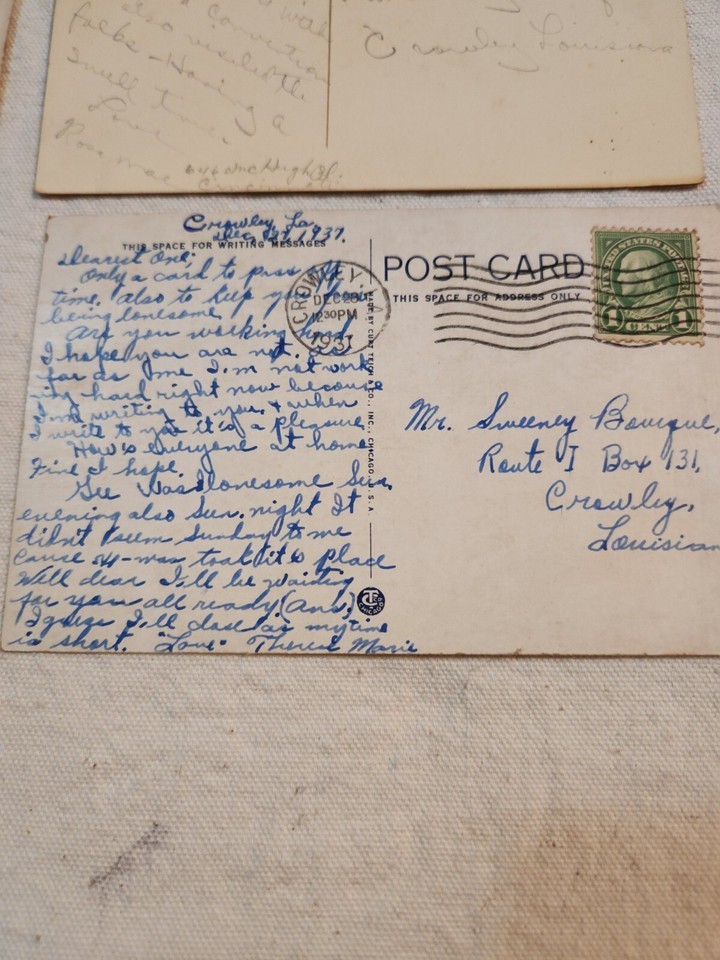 with
a convention
also visited the
folks - Having a
swell time.
Love
Rose Mae
646 McHugh Pl.
Crowley Louisiana
Crowley, La
Dec 27, 1937.
THIS SPACE FOR WRITING MESSAGES
Dearest One;
Only a card to pass
time. also to keep you from
being lonesome
Are you working hard
I hope you are not. as
far as me I'm not work
ing hard right now because
I'm writing to you, & when
I write to you it's a pleasure
How's everyone at home
Fine I hope
Gee was lonesome Sun.
evening also Sun. night It
didn't seem Sunday to me
Cause took it's place
Well dear I'll be waiting
for you all ready (Ans)
I guess I'll close as my time
is short. "Love" Theresa Marie
CROWLEY, LA
DEC 28
12 30 PM
1937
MADE BY CURT TEICH & CO., INC., CHICAGO, U.S.A.
POST CARD
THIS SPACE FOR ADDRESS ONLY
UNITED STATES POSTAGE
1 1
Mr. Sweeney Bourque,
Route 1 Box 131,
Crowley,
Louisian